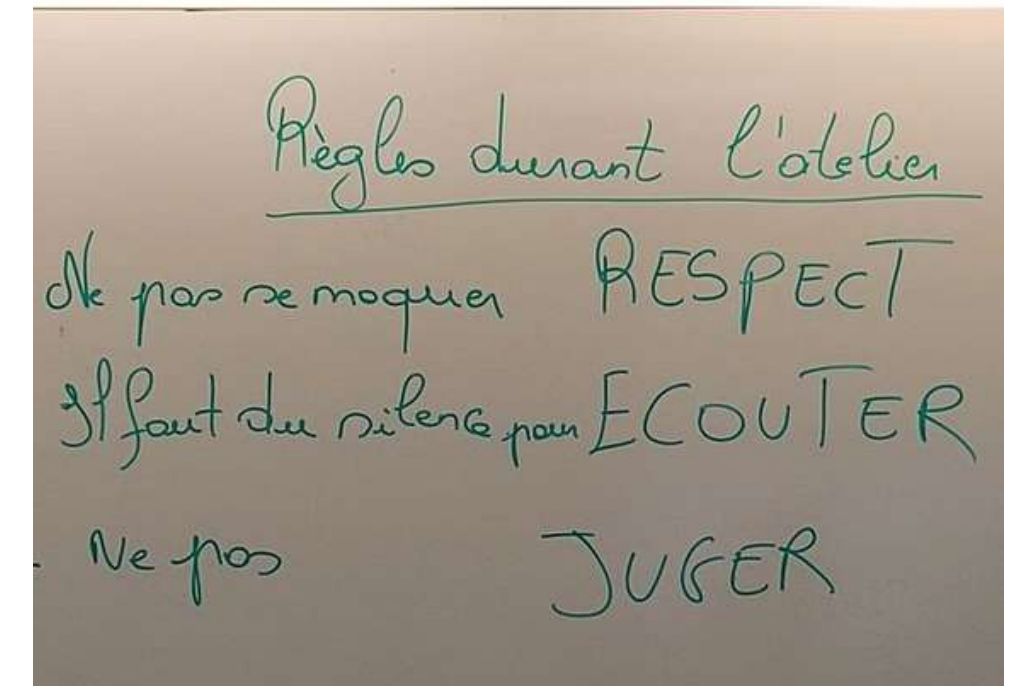 Règles durant l'atelier
Ne pas se moquer RESPECT
Il faut du silence pour ECOUTER
- Ne pas JUGER